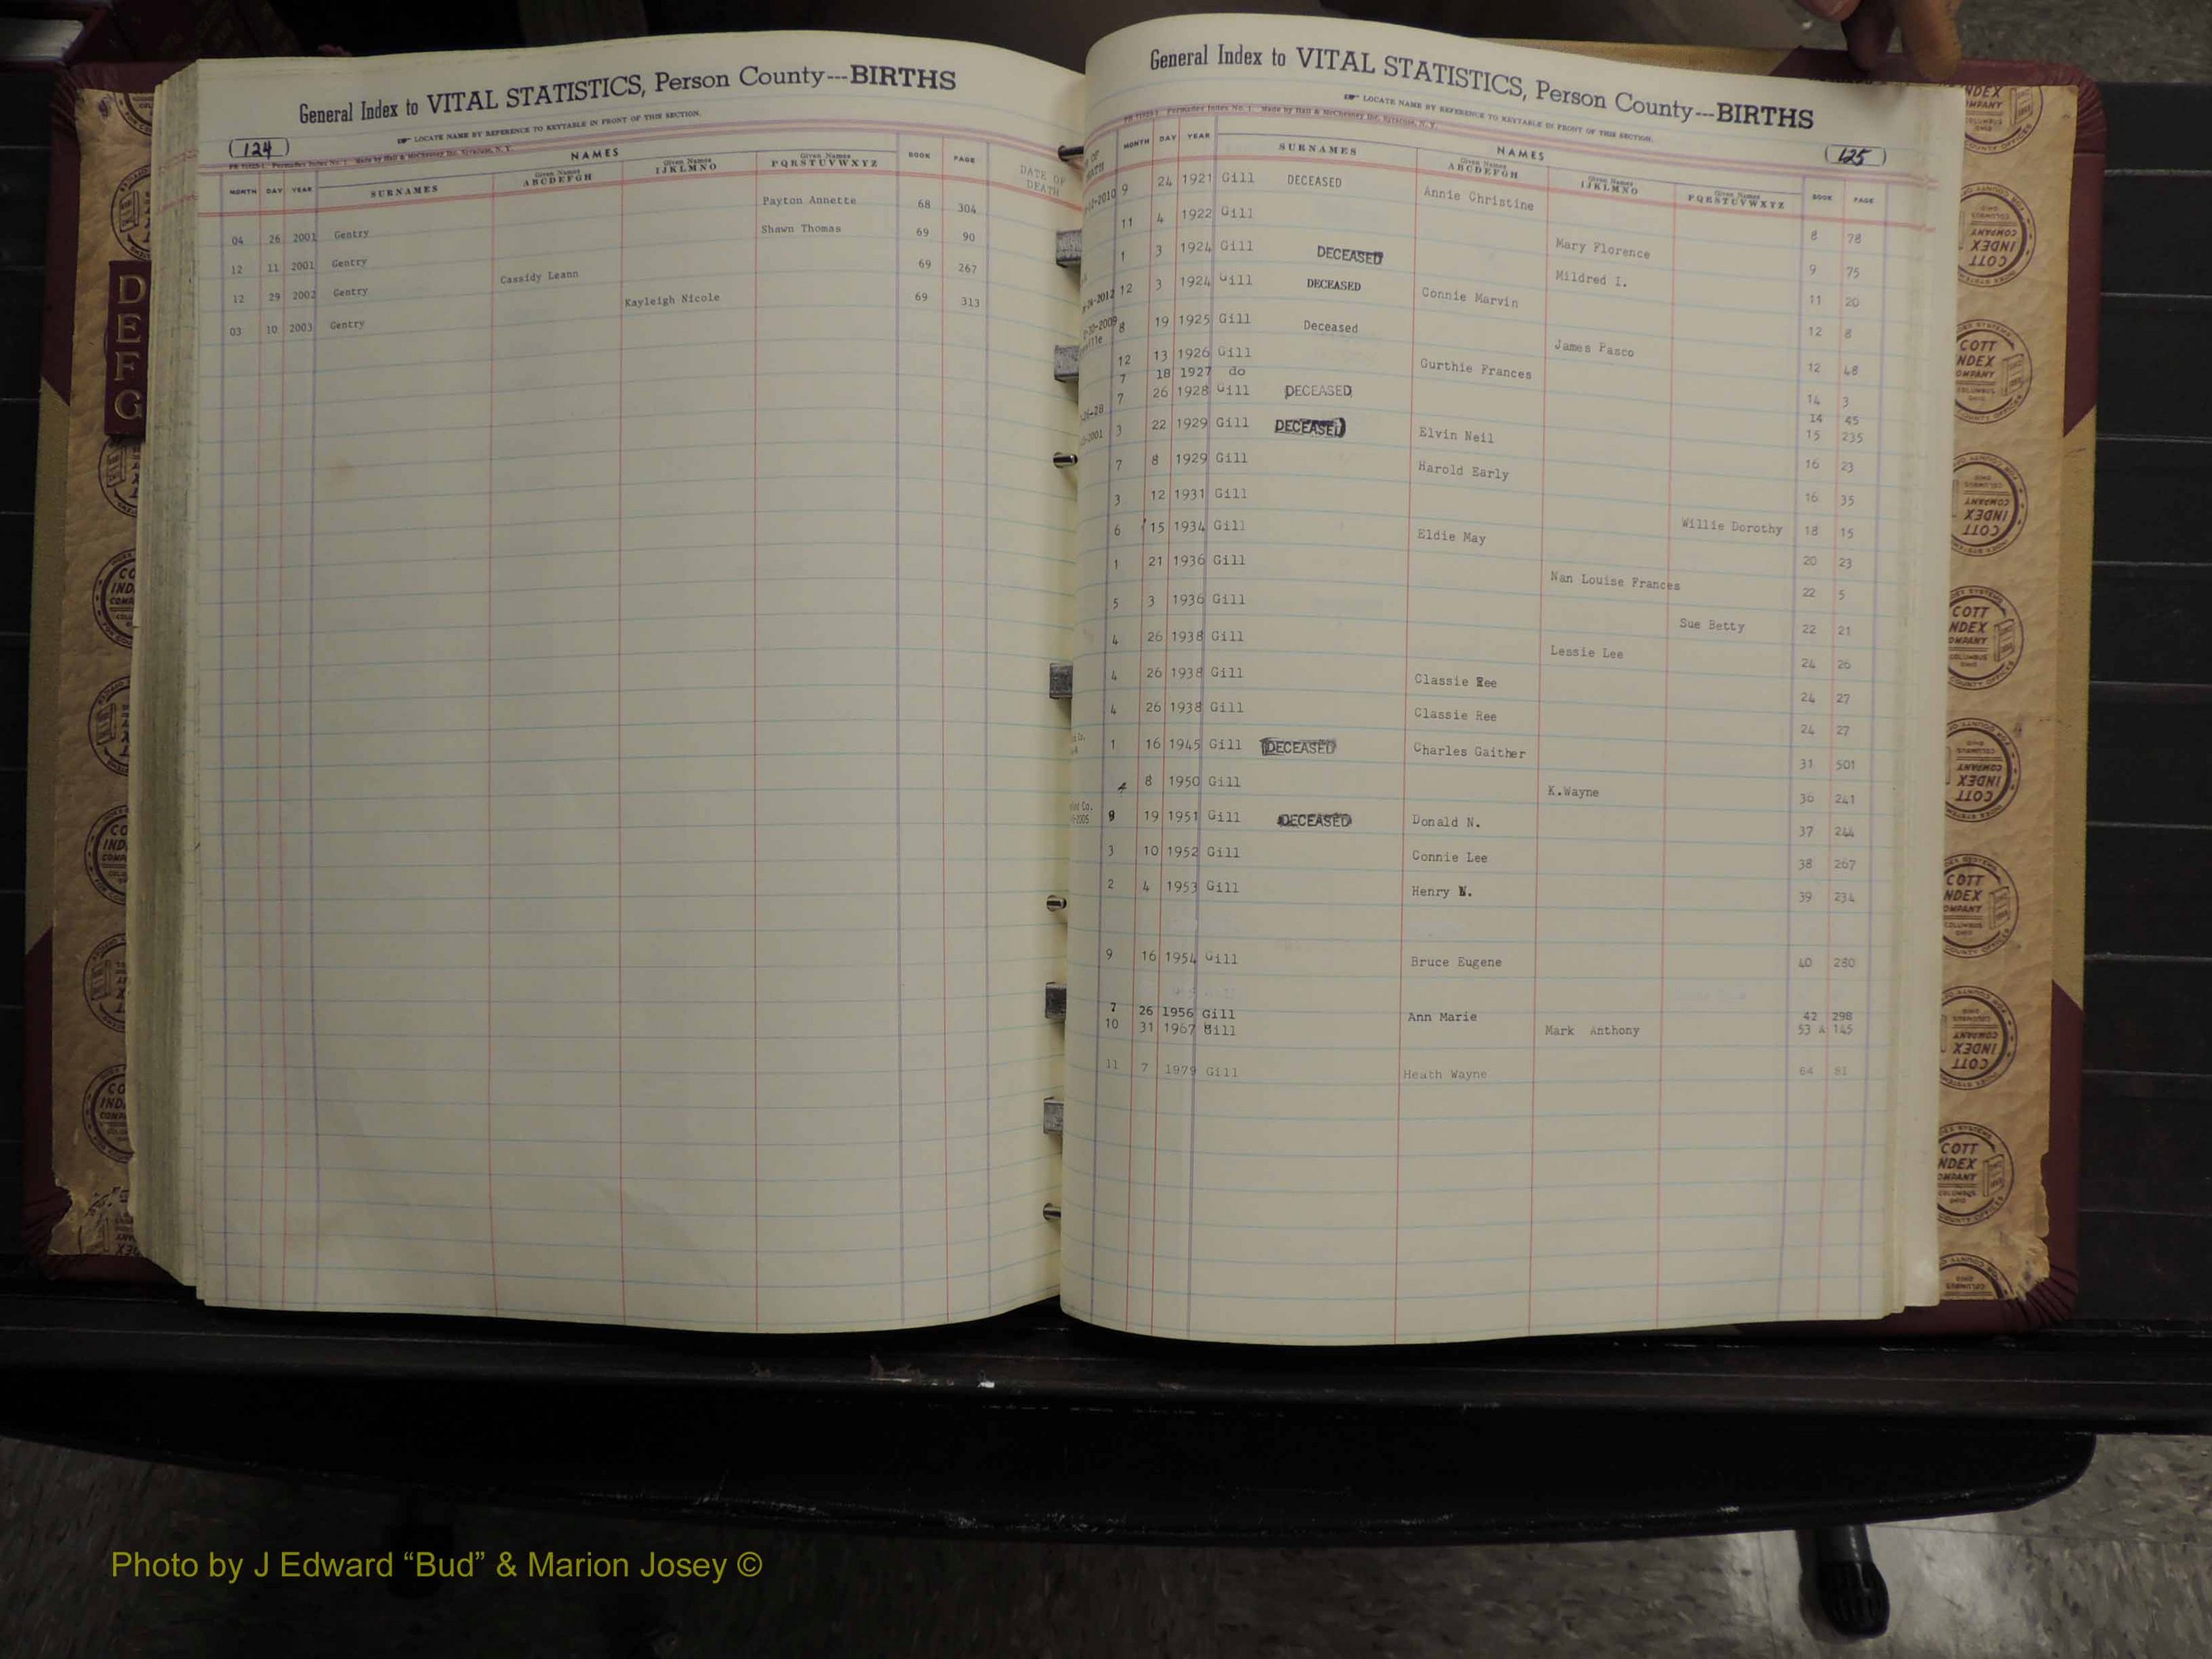 General Index to VITAL STATISTICS, Person County---BIRTHS
LOCATE NAME BY REFERENCE TO KEYTABLE IN FRONT OF THIS SECTION.
124
Made by Hall & McChesney Inc. Syracuse, N. Y.
NAMES
MONTH DAY YEAR SURNAMES Given Names ABCDEFGH Given Names IJKLMNO Given Names PQRSTUVWXYZ BOOK PAGE DATE OF DEATH
04 26 2001 Gentry Payton Annette 68 304
12 11 2001 Gentry Shawn Thomas 69 90
12 29 2002 Gentry Cassidy Leann 69 267
03 10 2003 Gentry Kayleigh Nicole 69 313
D
E
F
G
General Index to VITAL STATISTICS, Person County---BIRTHS
LOCATE NAME BY REFERENCE TO KEYTABLE IN FRONT OF THIS SECTION.
Permaflex Index No. 1 Made by Hall & McChesney Inc. Syracuse, N. Y.
125
NAMES
MONTH DAY YEAR SURNAMES Given Names ABCDEFGH Given Names IJKLMNO Given Names PQRSTUVWXYZ BOOK PAGE
9 24 1921 Gill DECEASED Annie Christine 8 78
11 4 1922 Gill Mary Florence 9 75
1 3 1924 Gill DECEASED Mildred I. 11 20
12 3 1924 Gill DECEASED Connie Marvin 12 8
8 19 1925 Gill Deceased James Pasco 12 48
12 13 1926 Gill Gurthie Frances 14 3
7 18 1927 do 14 45
7 26 1928 Gill DECEASED 15 235
3 22 1929 Gill DECEASED Elvin Neil 16 23
7 8 1929 Gill Harold Early 16 35
3 12 1931 Gill Willie Dorothy 18 15
6 15 1934 Gill Eldie May 20 23
1 21 1936 Gill Nan Louise Frances 22 5
5 3 1936 Gill Sue Betty 22 21
4 26 1938 Gill Lessie Lee 24 26
4 26 1938 Gill Classie Ree 24 27
4 26 1938 Gill Classie Ree 24 27
1 16 1945 Gill DECEASED Charles Gaither 31 501
4 8 1950 Gill K.Wayne 36 241
9 19 1951 Gill DECEASED Donald N. 37 244
3 10 1952 Gill Connie Lee 38 267
2 4 1953 Gill Henry N. 39 234
9 16 1954 Gill Bruce Eugene 40 280
7 26 1956 Gill Ann Marie 42 298
10 31 1967 Gill Mark Anthony 53 A 145
11 7 1979 Gill Heath Wayne 64 81
COTT
INDEX
COMPANY
COLUMBUS
OHIO
Photo by J Edward “Bud” & Marion Josey ©